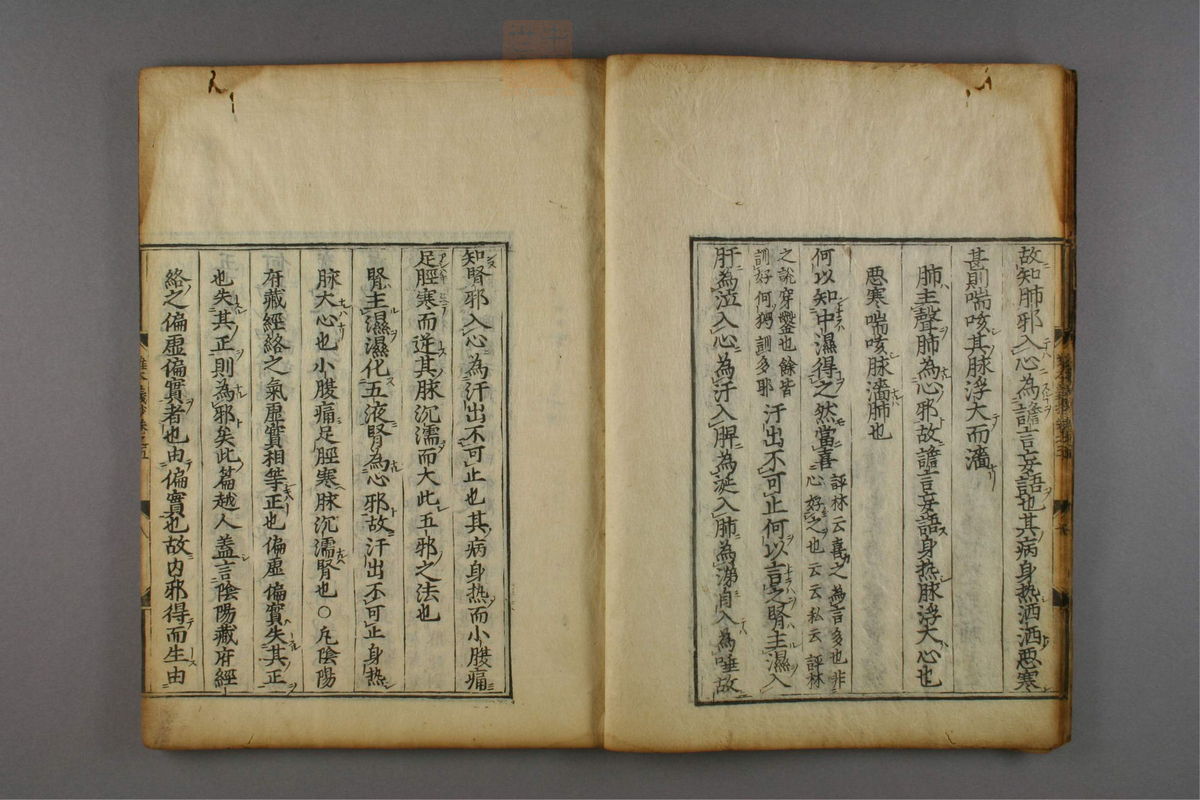 故知肺邪入心為譫言妄語也其病身热洒洒悪寒
甚則喘咳其脉浮大而濇
肺主聲肺為心邪故譫言妄語身热脉浮大心也
悪寒喘咳脉濇肺也
何以知中濕得之然當喜
評林云喜之為言多也非
心好之也云云私云評林
之説穿鑿也餘皆
訓好何獨訓多耶
汗出不可止何以言之腎主濕入
肝為泣入心為汗入脾為涎入肺為涕自入為唾故
知腎邪入心為汗出不可止也其病身热而小腹痛
足脛寒而逆其脉沉濡而大此五邪之法也
腎主濕濕化五液腎為心邪故汗出不可止身热
脉大心也小腹痛足脛寒脉沉濡腎也○凢陰陽
府藏經絡之氣虛實相等正也偏虛偏實失其正
也失其正則為邪矣此篇越人蓋言陰陽藏府經
絡之偏虛偏實者也由偏實也故内邪得而生由